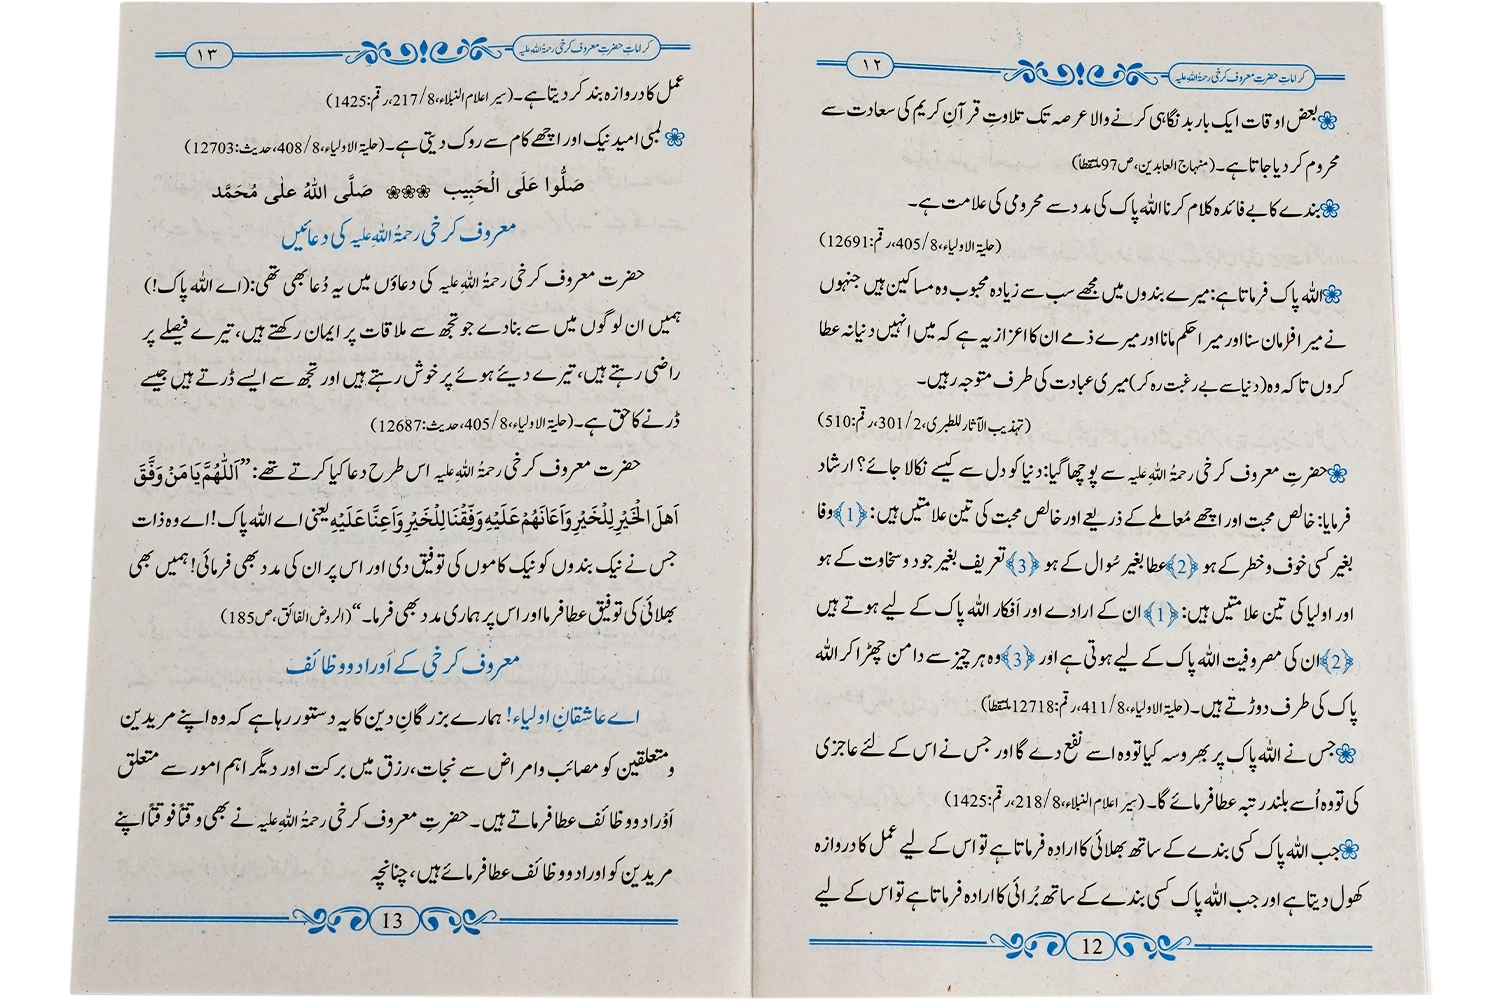 کراماتِ حضرتِ معروف کرخی رحمۃُ اللہِ علیہ
۱۲
بعض اوقات ایک بار بدنگاہی کرنے والا عرصہ تک تلاوتِ قرآنِ کریم کی سعادت سے
محروم کر دیا جاتا ہے۔ (منہاج العابدین، ص97 ملتقطاً)
بندے کا بے فائدہ کلام کرنا اللہ پاک کی مدد سے محرومی کی علامت ہے۔
(حلیۃ الاولیاء، 8/405، رقم: 12691)
اللہ پاک فرماتا ہے: میرے بندوں میں مجھے سب سے زیادہ محبوب وہ مساکین ہیں جنہوں
نے میرا فرمان سنا اور میرا حکم مانا اور میرے ذمے ان کا اعزاز یہ ہے کہ میں انہیں دنیا نہ عطا
کروں تاکہ وہ (دنیا سے بے رغبت رہ کر) میری عبادت کی طرف متوجہ رہیں۔
(تہذیب الآثار للطبری، 2/301، رقم: 510)
حضرتِ معروف کرخی رحمۃُ اللہِ علیہ سے پوچھا گیا: دنیا کو دل سے کیسے نکالا جائے؟ ارشاد
فرمایا: خالص محبت اور اچھے مُعاملے کے ذریعے اور خالص محبت کی تین علامتیں ہیں: ﴿1﴾ وفا
بغیر کسی خوف و خطر کے ہو ﴿2﴾ عطا بغیر سُوال کے ہو ﴿3﴾ تعریف بغیر جود و سخاوت کے ہو
اور اولیا کی تین علامتیں ہیں: ﴿1﴾ ان کے ارادے اور اَفکار اللہ پاک کے لیے ہوتے ہیں
﴿2﴾ ان کی مصروفیت اللہ پاک کے لیے ہوتی ہے اور ﴿3﴾ وہ ہر چیز سے دامن چھڑا کر اللہ
پاک کی طرف دوڑتے ہیں۔ (حلیۃ الاولیاء، 8/411، رقم: 12718 ملتقطاً)
جس نے اللہ پاک پر بھروسہ کیا تو وہ اسے نفع دے گا اور جس نے اس کے لئے عاجزی
کی تو وہ اُسے بلند رتبہ عطا فرمائے گا۔ (سیر اعلام النبلاء، 8/218، رقم: 1425)
جب اللہ پاک کسی بندے کے ساتھ بھلائی کا ارادہ فرماتا ہے تو اس کے لیے عمل کا دروازہ
کھول دیتا ہے اور جب اللہ پاک کسی بندے کے ساتھ بُرائی کا ارادہ فرماتا ہے تو اس کے لیے
12
کراماتِ حضرتِ معروف کرخی رحمۃُ اللہِ علیہ
۱۳
عمل کا دروازہ بند کر دیتا ہے۔ (سیر اعلام النبلاء، 8/217، رقم: 1425)
لمبی امید نیک اور اچھے کام سے روک دیتی ہے۔ (حلیۃ الاولیاء، 8/408، حدیث: 12703)
صَلُّوا عَلَی الْحَبِیب ❀❀❀ صَلَّی اللهُ علٰی مُحَمَّد
معروف کرخی رحمۃُ اللہِ علیہ کی دعائیں
حضرت معروف کرخی رحمۃُ اللہِ علیہ کی دعاؤں میں یہ دُعا بھی تھی: (اے اللہ پاک!)
ہمیں ان لوگوں میں سے بنا دے جو تجھ سے ملاقات پر ایمان رکھتے ہیں، تیرے فیصلے پر
راضی رہتے ہیں، تیرے دیئے ہوئے پر خوش رہتے ہیں اور تجھ سے ایسے ڈرتے ہیں جیسے
ڈرنے کا حق ہے۔ (حلیۃ الاولیاء، 8/405، حدیث: 12687)
حضرت معروف کرخی رحمۃُ اللہِ علیہ اس طرح دعا کیا کرتے تھے: ”اَللّٰهُمَّ یَا مَنْ وَفَّقَ
اَهلَ الْخَیْرِ لِلْخَیْرِ وَاَعَانَهُمْ عَلَیْهِ وَفِّقْنَا لِلْخَیْرِ وَاَعِنَّا عَلَیْهِ یعنی اے اللہ پاک! اے وہ ذات
جس نے نیک بندوں کو نیک کاموں کی توفیق دی اور اس پر ان کی مدد بھی فرمائی! ہمیں بھی
بھلائی کی توفیق عطا فرما اور اس پر ہماری مدد بھی فرما۔“ (الروض الفائق، ص185)
معروف کرخی کے اَوراد و وظائف
اے عاشقانِ اولیاء! ہمارے بزرگانِ دین کا یہ دستور رہا ہے کہ وہ اپنے مریدین
و متعلقین کو مصائب و امراض سے نجات، رزق میں برکت اور دیگر اہم امور سے متعلق
اَوْراد و وظائف عطا فرماتے ہیں۔ حضرتِ معروف کرخی رحمۃُ اللہِ علیہ نے بھی وقتاً فوقتاً اپنے
مریدین کو اوراد و وظائف عطا فرمائے ہیں، چنانچہ
13